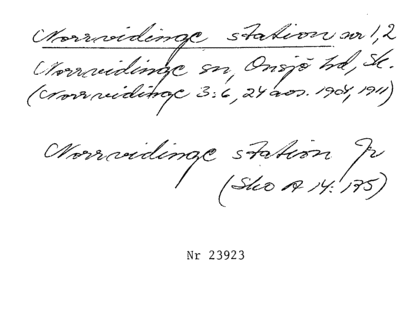 Norrvidinge station nr 1, 2
Norrvidinge sn, Onsjö hd, Sk.
(Norrvidinge 3:6, 24 avs. 1904, 1911)
Norrvidinge station Jr
(Sko A 14: 175)
Nr 23923